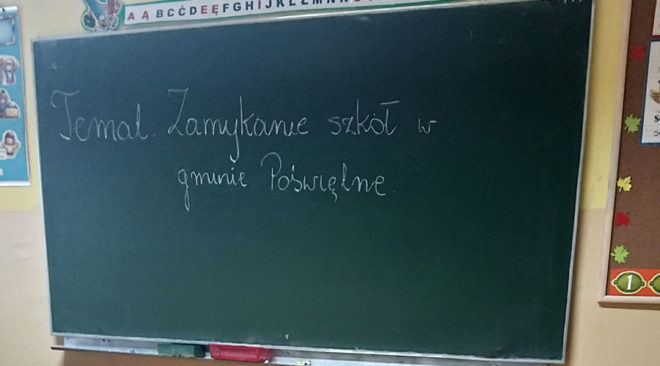 A Ą B C Ć D E Ę F G H I J K L Ł M N
Temat: Zamykanie szkół w
gminie Poświętne.
1